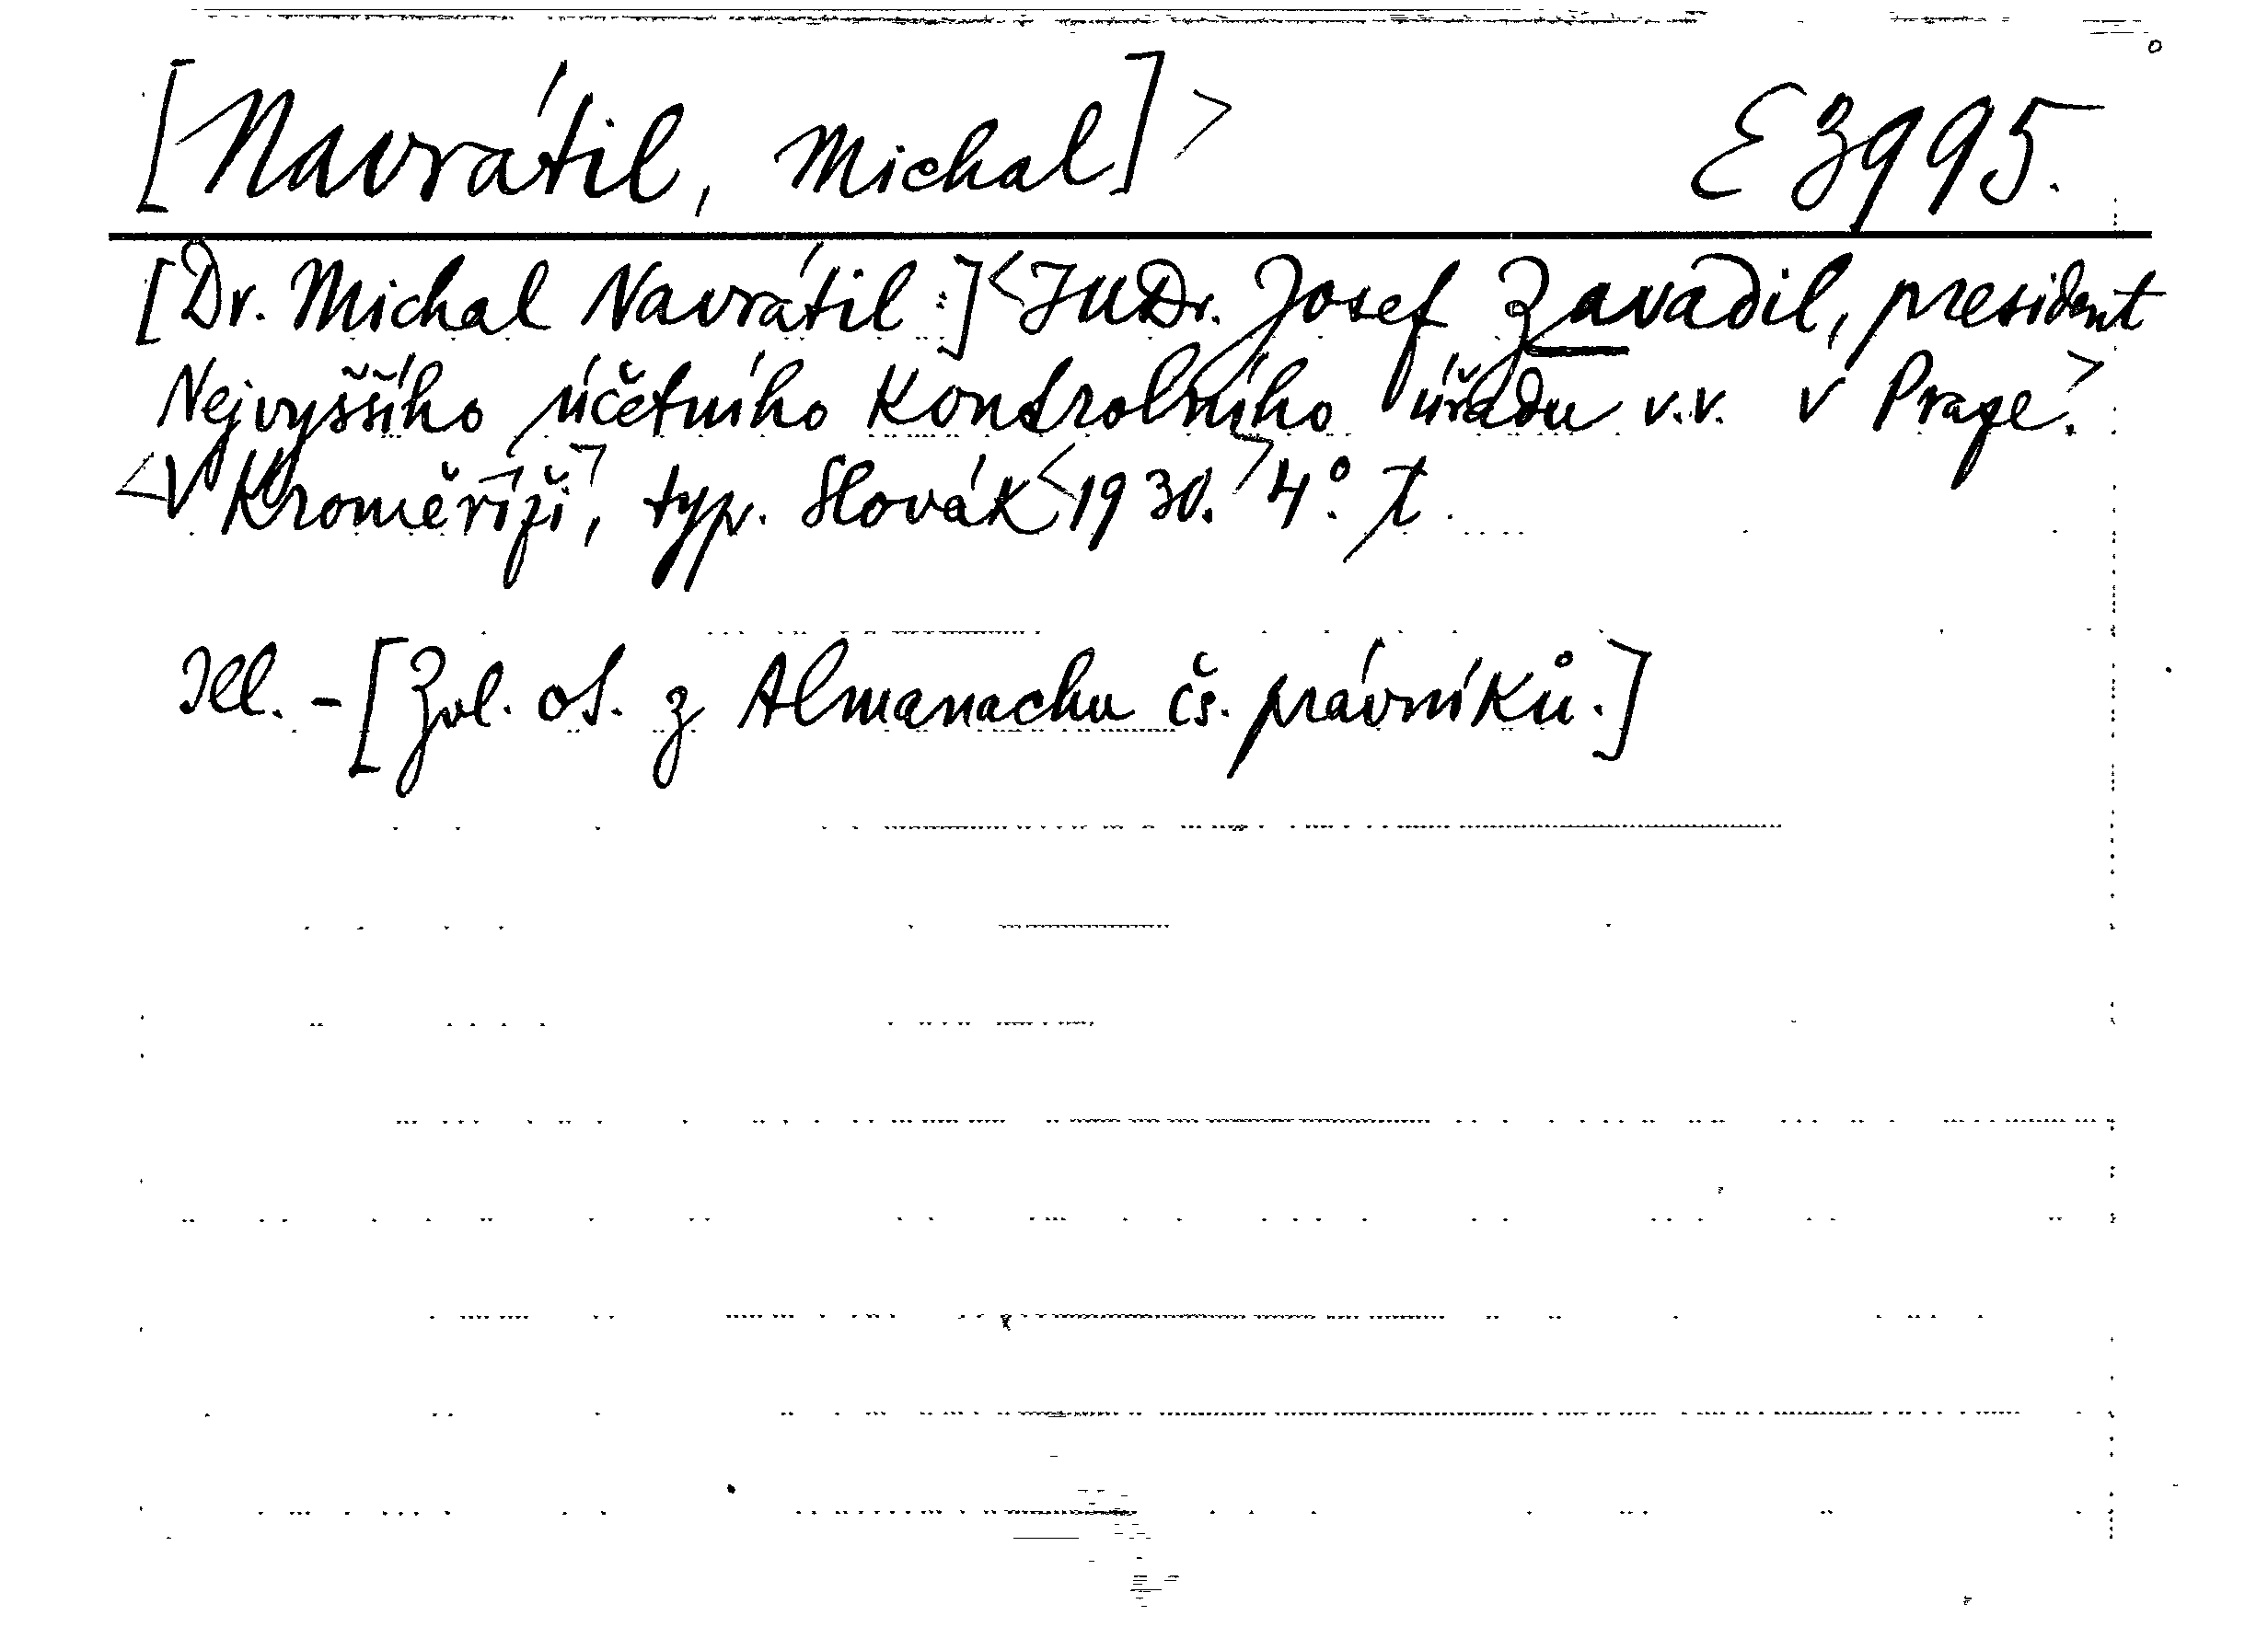 [Navrátil, Michal]> E 3995.
[Dr. Michal Navrátil:]<JUDr. Josef Zavadil, president
Nejvyššího účetního kontrolního úřadu v.v. v Praze.>
<V Kroměříži>, typ. Slovák <1930.> 4°.
Ill. - [Zvl. ot. z Almanachu čs. právníků.]